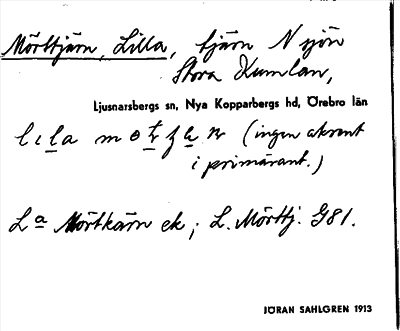 Mörttjärn, Lilla, tjärn N sjön
Stora Kumlan,
Ljusnarsbergs sn, Nya Kopparbergs hd, Örebro län
(ingen akcent
i primärant.)
La Mörtkärn ek; L. Mörttj. G81.
JÖRAN SAHLGREN 1913